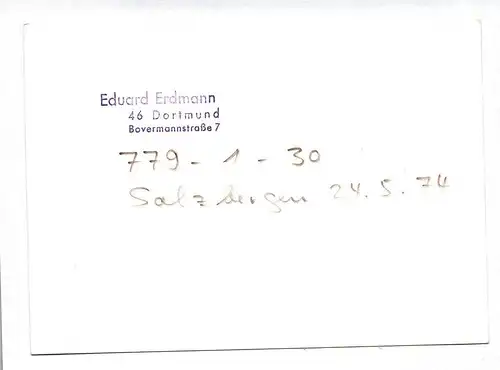 Eduard Erdmann
46 Dortmund
Bovermannstraße 7
779-1-30
Salzbergen 24.5.74